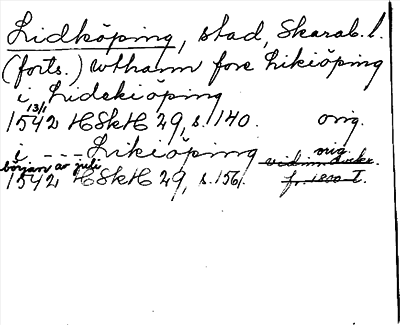 Lidköping, stad, Skarab. l.
(forts.) wthänn fore Likiöping
i Lidekiöping
13/1
1542 HSkH 29, s. 140. orig.
i --- Likiöping orig.
början av juli
1542 HSkH 29, s. 156. fr. 1800-t.